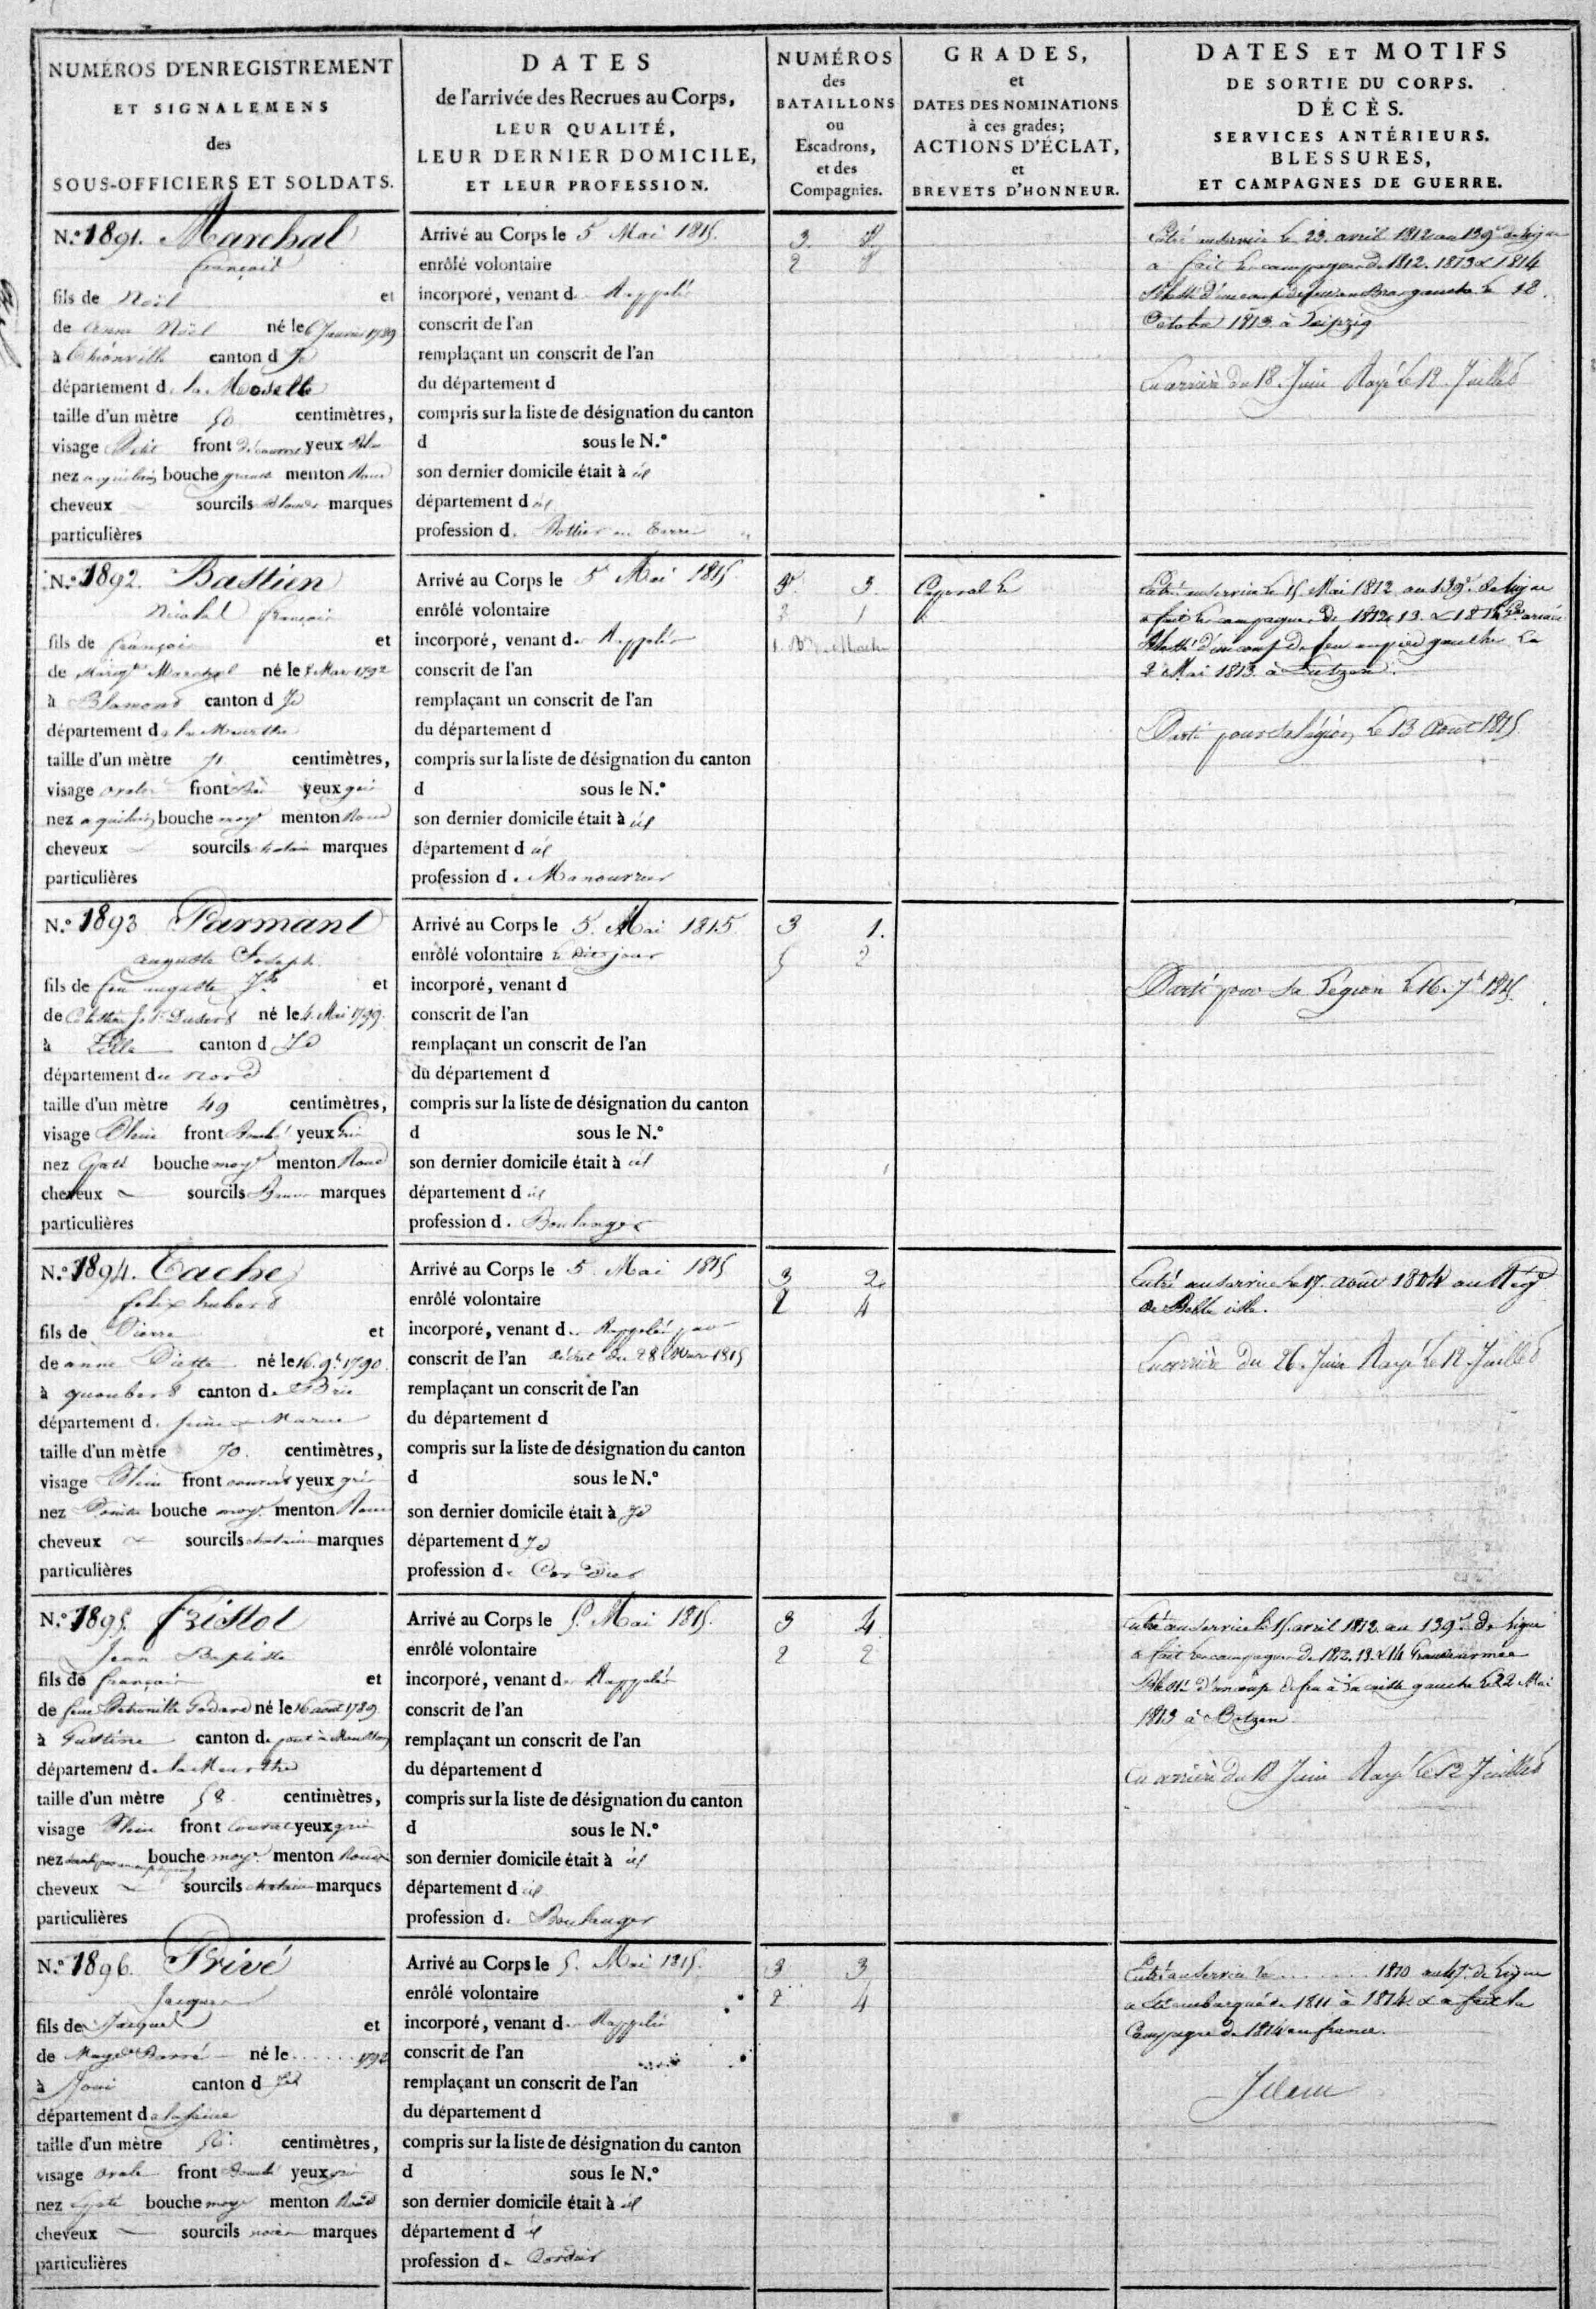 NUMÉROS D'ENREGISTREMENT
ET SIGNALEMENS
des
SOUS-OFFICIERS ET SOLDATS.
DATES
de l'arrivée des Recrues au Corps,
LEUR QUALITÉ,
LEUR DERNIER DOMICILE,
ET LEUR PROFESSION.
NUMÉROS
des
BATAILLONS
ou
Escadrons,
et des
Compagnies.
GRADES,
et
DATES DES NOMINATIONS
à ces grades;
ACTIONS D'ÉCLAT,
et
BREVETS D'HONNEUR.
DATES ET MOTIFS
DE SORTIE DU CORPS.
DÉCÈS.
SERVICES ANTÉRIEURS.
BLESSURES,
ET CAMPAGNES DE GUERRE.
N.º 1891. Marchal
françois
fils de Noël et
de anne Noël né le 6 Janvier 1789
à Thionville canton d Id
département d. la Moselle
taille d'un mètre 50 centimètres,
visage Petit front Découvert yeux
nez aquilin bouche grande menton Rond
cheveux sourcils marques
particulières
Arrivé au Corps le 5 Mai 1815.
enrôlé volontaire
incorporé, venant d Rappelé
conscrit de l'an
remplaçant un conscrit de l'an
du département d
compris sur la liste de désignation du canton
d sous le N.º
son dernier domicile était à id
département d id
profession d. Pottier en terre
3.
2
Entré au service le 23. avril 1812 au 139e de ligne
a fait les campagnes de 1812. 1813 & 1814
Blessé d'un coup de feu au Bras gauche le 18.
Octobre 1813. à Leipzig
En arrière du 18. Juin Rayé le 12 Juillet
N.º 1892. Bastien
Nicolas françois
fils de françois et
de Marg.te Marchal né le 8 Mars 1792
à Blamont canton d Id
département d la Meurthe
taille d'un mètre 71 centimètres,
visage ovale front Bas yeux gris
nez aquilin bouche moy.e menton Rond
cheveux sourcils chatain marques
particulières
Arrivé au Corps le 5 Mai 1815.
enrôlé volontaire
incorporé, venant d. Rappelé
conscrit de l'an
remplaçant un conscrit de l'an
du département d
compris sur la liste de désignation du canton
d sous le N.º
son dernier domicile était à id
département d id
profession d. Manouvrier
3. 3.
1
Caporal le
Entré au service le 15 Mai 1812 au 139e de ligne
a fait les campagnes de 1812, 13. & 1814 Gde armée
Blessé d'un coup de feu au pied gauche le
2 Mai 1813. à Lutzen.
Parti pour sa légion le 13 Aout 1815.
N.º 1893 Parmant
auguste Joseph
fils de feu auguste J.ph et
de né le 4. Mai 1799.
à Lille canton d Id
département du nord
taille d'un mètre 49 centimètres,
visage Plein front Bombé yeux gris
nez Epaté bouche moy.e menton Rond
cheveux sourcils Bruns marques
particulières
Arrivé au Corps le 5. Mai 1815.
enrôlé volontaire le dit jour
incorporé, venant d
conscrit de l'an
remplaçant un conscrit de l'an
du département d
compris sur la liste de désignation du canton
d sous le N.º
son dernier domicile était à id
département d id
profession d. Boulanger
3 1.
5 2
Parti pour sa Légion le 16. 7b 1815.
N.º 1894. Cache
felix hubert
fils de Pierre et
de anne né le 16. 9b. 1790.
à canton d. Brie
département d. seine & Marne
taille d'un mètre 70. centimètres,
visage Plein front couvert yeux gris
nez Pointu bouche moy.e menton Rond
cheveux sourcils chatain marques
particulières
Arrivé au Corps le 5 Mai 1815
enrôlé volontaire
incorporé, venant d. Rappelé par
conscrit de l'an décret du 28 Mars 1815
remplaçant un conscrit de l'an
du département d
compris sur la liste de désignation du canton
d sous le N.º
son dernier domicile était à Id
département d Id
profession d. Cordier
3 2.
2 4
Entré au service le 17. aout 1804 au Régt
de Belle isle.
En arrière du 26. Juin Rayé le 12 Juillet
N.º 1895. fristot
Jean Baptiste
fils de françois et
de feue Petronille Godard né le 16 aout 1789.
à Gustine canton d. pont à Mousson
département d. la Meurthe
taille d'un mètre 58. centimètres,
visage Plein front Couvert yeux gris
nez bouche moy.e menton Rond
cheveux sourcils chatain marques
particulières
Arrivé au Corps le 5. Mai 1815.
enrôlé volontaire
incorporé, venant d. Rappelé
conscrit de l'an
remplaçant un conscrit de l'an
du département d
compris sur la liste de désignation du canton
d sous le N.º
son dernier domicile était à id
département d id
profession d. Boulanger
3 4
2 2
Entré au service le 15 avril 1812. au 139e de ligne
a fait les campagnes de 1812. 13. & 14 Grande armée
Blessé d'un coup de feu à la cuisse gauche le 22 Mai
1813 à Butzen.
En arrière du 18 Juin Rayé le 12 Juillet
N.º 1896. Privé
Jacques
fils de Jacques et
de né le ...... 1792
à Joui canton d Id
département d la seine
taille d'un mètre 56. centimètres,
visage ovale front Bombé yeux gris
nez Epaté bouche moy.e menton Rond
cheveux sourcils noirs marques
particulières
Arrivé au Corps le 5. Mai 1815.
enrôlé volontaire
incorporé, venant d. Rappelé
conscrit de l'an
remplaçant un conscrit de l'an
du département d
compris sur la liste de désignation du canton
d sous le N.º
son dernier domicile était à id
département d id
profession d. Cordier
3 3
2 4
Entré au Service le ....... 1810 au de ligne
a été embarqué de 1811 à 1814. & a fait la
Campagne de 1814 en france.
Idem